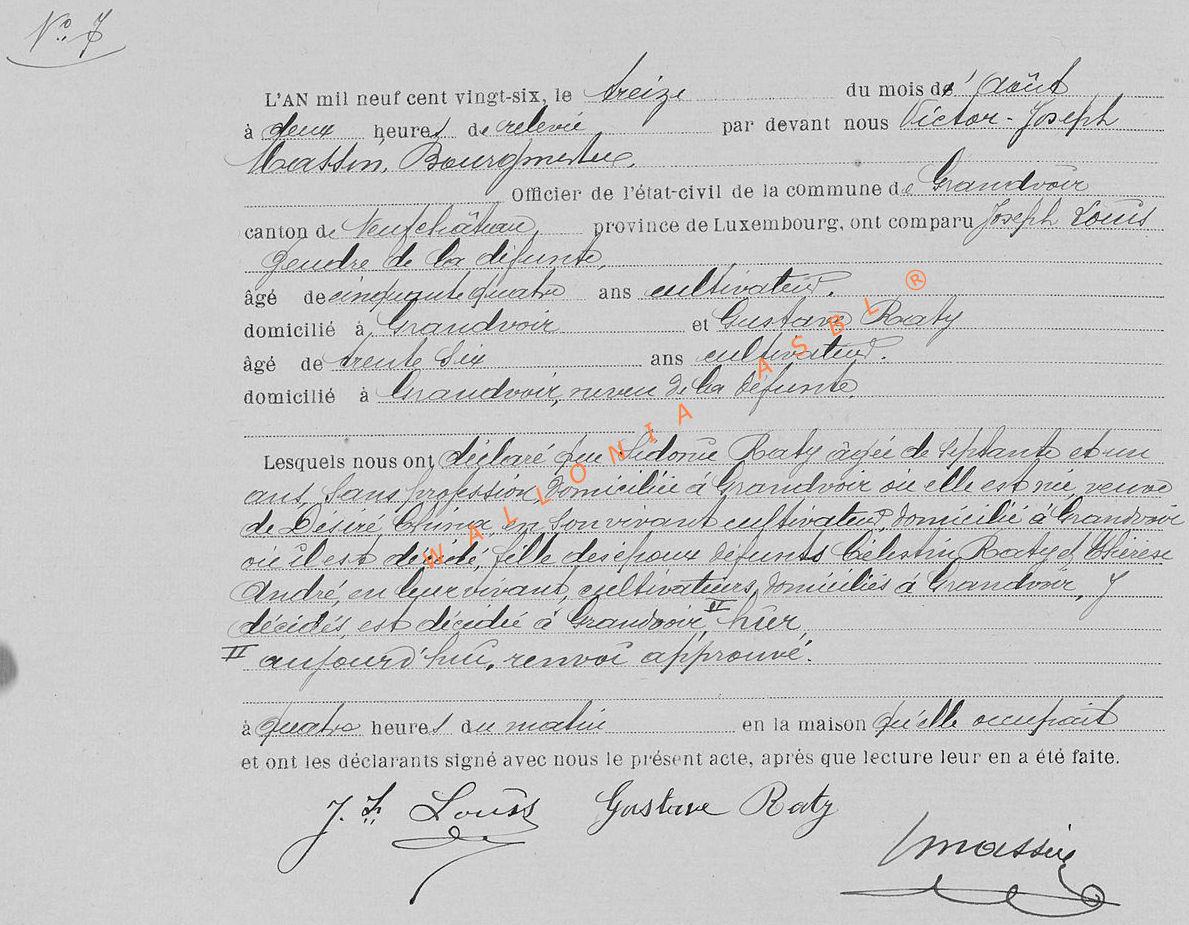 N° 7
L'AN mil neuf cent vingt-six, le treize du mois d'août
à deux heures de relevée par devant nous Victor-Joseph
Massin, Bourgmestre,
Officier de l'état-civil de la commune de Grandvoir
canton de Neufchâteau, province de Luxembourg, ont comparu Joseph Louis
gendre de la défunte,
âgé de cinquante quatre ans cultivateur.
domicilié à Grandvoir et Gustave Raty
âgé de trente six ans cultivateur.
domicilié à Grandvoir, neveu de la défunte.
Lesquels nous ont déclaré que Sidonie Raty âgée de septante et un
ans, sans profession, domiciliée à Grandvoir où elle est née, veuve
de Désiré en son vivant cultivateur, domicilié à Grandvoir
où il est décédé, fille des époux défunts Célestin Raty et Thérèse
André, en leur vivant, cultivateurs, domiciliés à Grandvoir, y
décédés, est décédée à Grandvoir, II hier,
II aujourd'hui, renvoi approuvé.
à quatre heures du matin en la maison qu'elle occupait
et ont les déclarants signé avec nous le présent acte, après que lecture leur en a été faite.
J. L. Louis Gustave Raty
Vmassin
WALLONIA ASBL ®